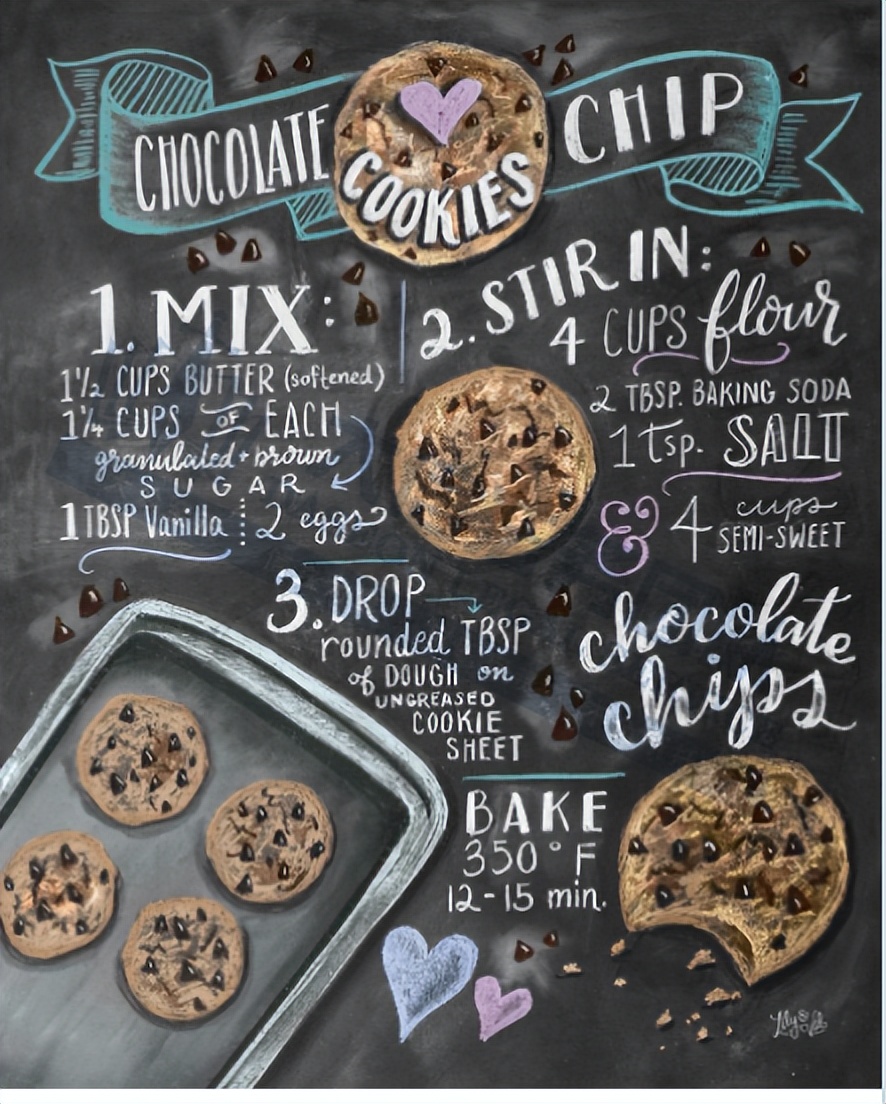 CHOCOLATE CHIP
COOKIES
1. MIX:
1 1/2 CUPS BUTTER (softened)
1 1/4 CUPS OF EACH
granulated + brown
SUGAR
1 TBSP Vanilla 2 eggs
2. STIR IN:
4 CUPS flour
2 TBSP. BAKING SODA
1 tsp. SALT
& 4 cups
SEMI-SWEET
chocolate
chips
3. DROP
rounded TBSP
of DOUGH on
UNGREASED
COOKIE
SHEET
BAKE
350°F
12-15 min.